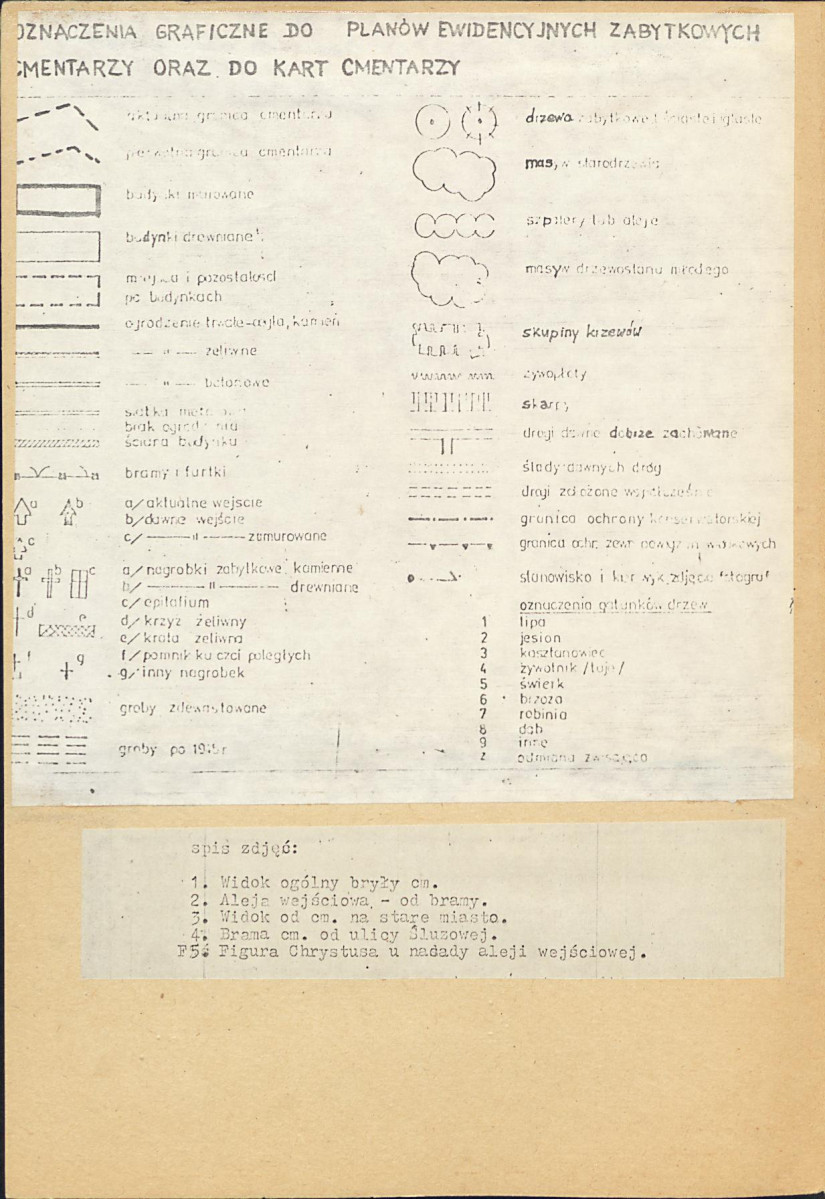 OZNACZENIA GRAFICZNE DO PLANÓW EWIDENCYJNYCH ZABYTKOWYCH
CMENTARZY ORAZ DO KART CMENTARZY
aktualna granica cmentarza
pierwotna granica cmentarza
budynki murowane
budynki drewniane
miejsca i pozostałości
po budynkach
ogrodzenie trwałe-cegła, kamień
— " — żeliwne
— " — betonowe
siatka
brak
ściana budynku
bramy i furtki
a b
a/ aktualne wejście
b/ dawne wejście
c
c/ ——— " ——— zamurowane
a b c
a/ nagrobki zabytkowe: kamienne
b/ ——— " ——— drewniane
c/ epitafium
d e
d/ krzyż żeliwny
e/ krata żeliwna
f g
f/ pomnik ku czci poległych
g/ inny nagrobek
groby zdewastowane
groby po 1945r
drzewa zabytkowe: iglaste
masyw starodrzewia
szpalery lub aleje
masyw drzewostanu młodego
skupiny krzewów
żywopłoty
skarpy
drogi dawne dobrze zachowane
ślady dawnych dróg
drogi założone współcześnie
granica ochrony konserwatorskiej
granica
stanowisko i kier. wyk. zdjęcia
oznaczenia gatunków drzew
1 lipa
2 jesion
3 kasztanowiec
4 żywotnik /tuja/
5 świerk
6 brzoza
7 robinia
8 dąb
9 inne
z odmiana zwisająca
spis zdjęć:
1. Widok ogólny bryły cm.
2. Aleja wejściowa - od bramy.
3. Widok od cm. na stare miasto.
4. Brama cm. od ulicy Śluzowej.
F5. Figura Chrystusa u nasady aleji wejściowej.